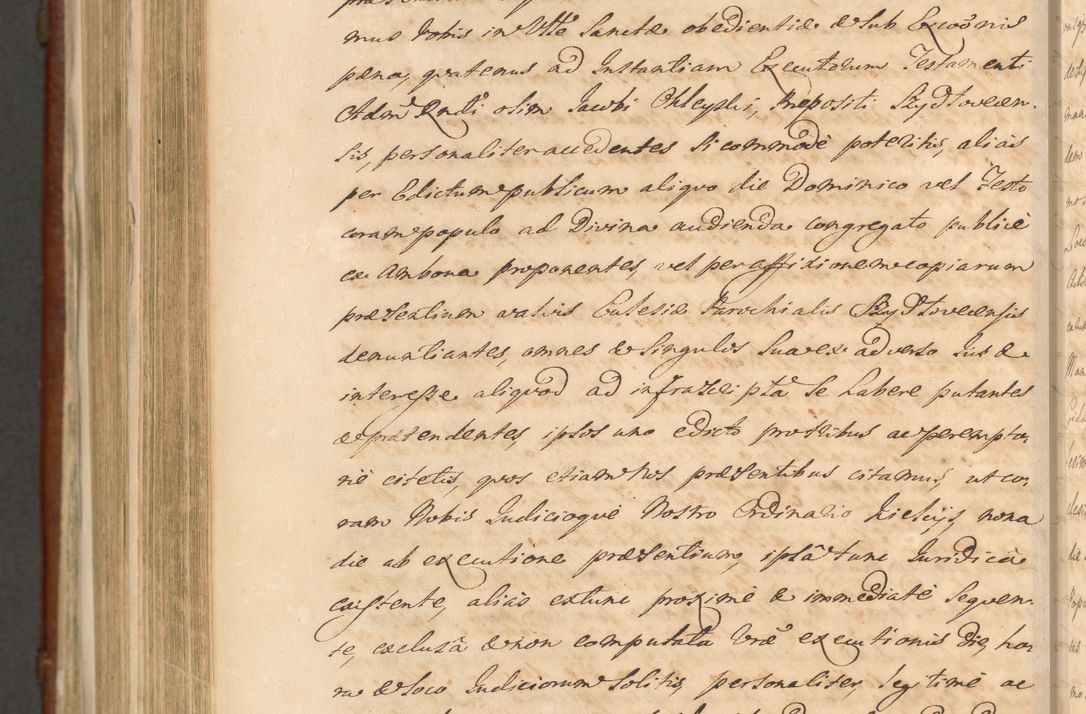 mus Vobis in Vtte Sanctæ obedientiæ & sub Excõnis
pæna, quatenus ad Instantiam Executorum Testamenti
Adm Rndi olim Jacobi Chleyski, Præpositi Szydłovien-
sis, personaliter accedentes si commodè poteritis, aliàs
per Edictum publicum aliquo die Dominico vel Festo
coram populo ad Divina audienda congregato publicè
ex Ambona proponentes, vel per affixionem copiarum
præsentium valvis Ecclesiæ Parochialis Szydłoviensis
denuntiantes, omnes & singulos sua ex adverso jus &
interesse aliquod ad infrascriptã se habere putantes
& prætendentes, ipsos uno edicto pro tribus ac perempto-
riè citetis, quos etiam Nos præsentibus citamus, ut co-
ram Nobis Judicioque Nostro Ordinario Kielcijs nona
die ab executione præsentium, ipsâ tunc Juridicâ
existente, aliàs extunc proximè & immediatè sequen-
te, exclusâ & non computatâ Vræ executionis die, ho-
ra & loco Judiciorum solitis, personaliter, legitimè ac